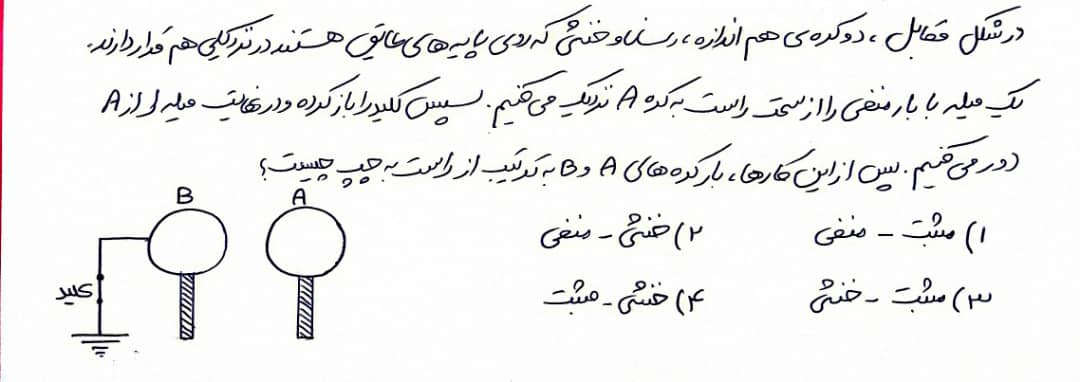 در شکل مقابل، دو کره‌ی هم اندازه، رسانا و خنثی که روی پایه‌های عایق هستند در نزدیکی هم قرار دارند.
یک میله با بار منفی را از سمت راست به کره A نزدیک می‌کنیم. سپس کلید را باز کرده و در نهایت میله را از A
دور می‌کنیم. پس از این کارها، بار کره‌های A و B به ترتیب از راست به چپ چیست؟
B A
۱) مثبت - منفی ۲) خنثی - منفی
کلید
۳) مثبت - خنثی ۴) خنثی - مثبت